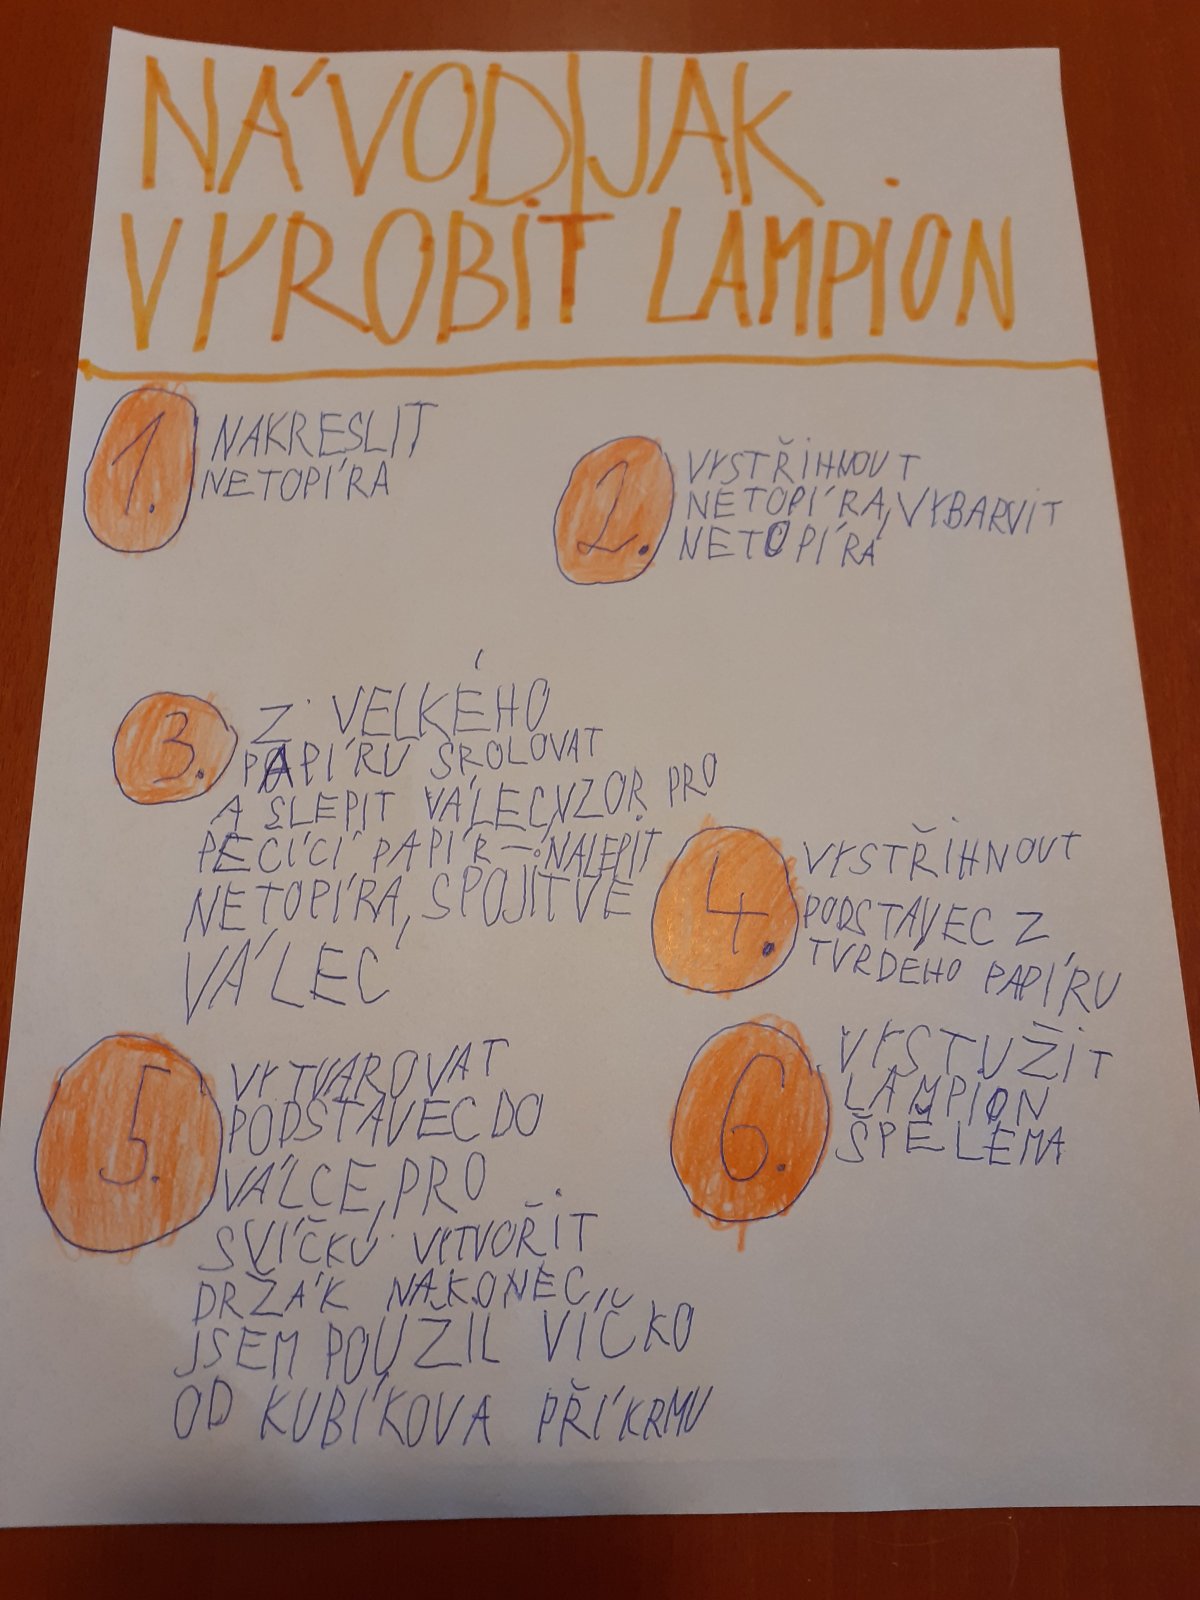 NÁVOD|JAK
VYROBIT LAMPION
1. NAKRESLIT
NETOPÍRA
2. VYSTŘIHNOUT
NETOPÍRA, VYBARVIT
NETOPÍRA
3. Z VELKÉHO
PAPÍRU SROLOVAT
A SLEPIT VÁLEC, VZOR PRO
PEČÍCÍ PAPÍR – NALEPIT
NETOPÍRA, SPOJIT VE
VÁLEC
4. VYSTŘIHNOUT
PODSTAVEC Z
TVRDÉHO PAPÍRU
5. VYTVAROVAT
PODSTAVEC DO
VÁLCE, PRO
SVÍČKU VYTVOŘIT
DRŽÁK NAKONEC
JSEM POUŽIL VÍČKO
OD KUBÍKOVA PŘÍKRMU
6. VYSTUŽIT
LAMPION
ŠPĚLEMA